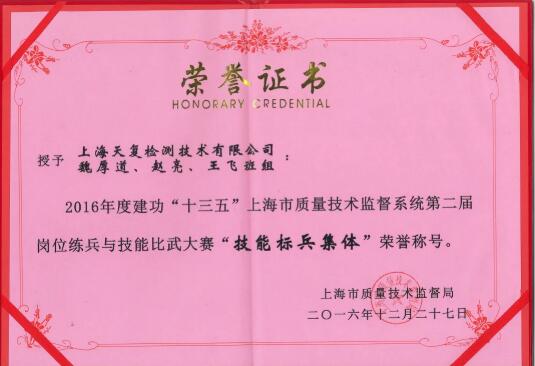 荣誉证书
HONORARY CREDENTIAL
授予 上海天复检测技术有限公司
魏厚道、赵亮、王飞班组：
2016年度建功“十三五”上海市质量技术监督系统第二届
岗位练兵与技能比武大赛“技能标兵集体”荣誉称号。
上海市质量技术监督局
二〇一六年十二月二十七日